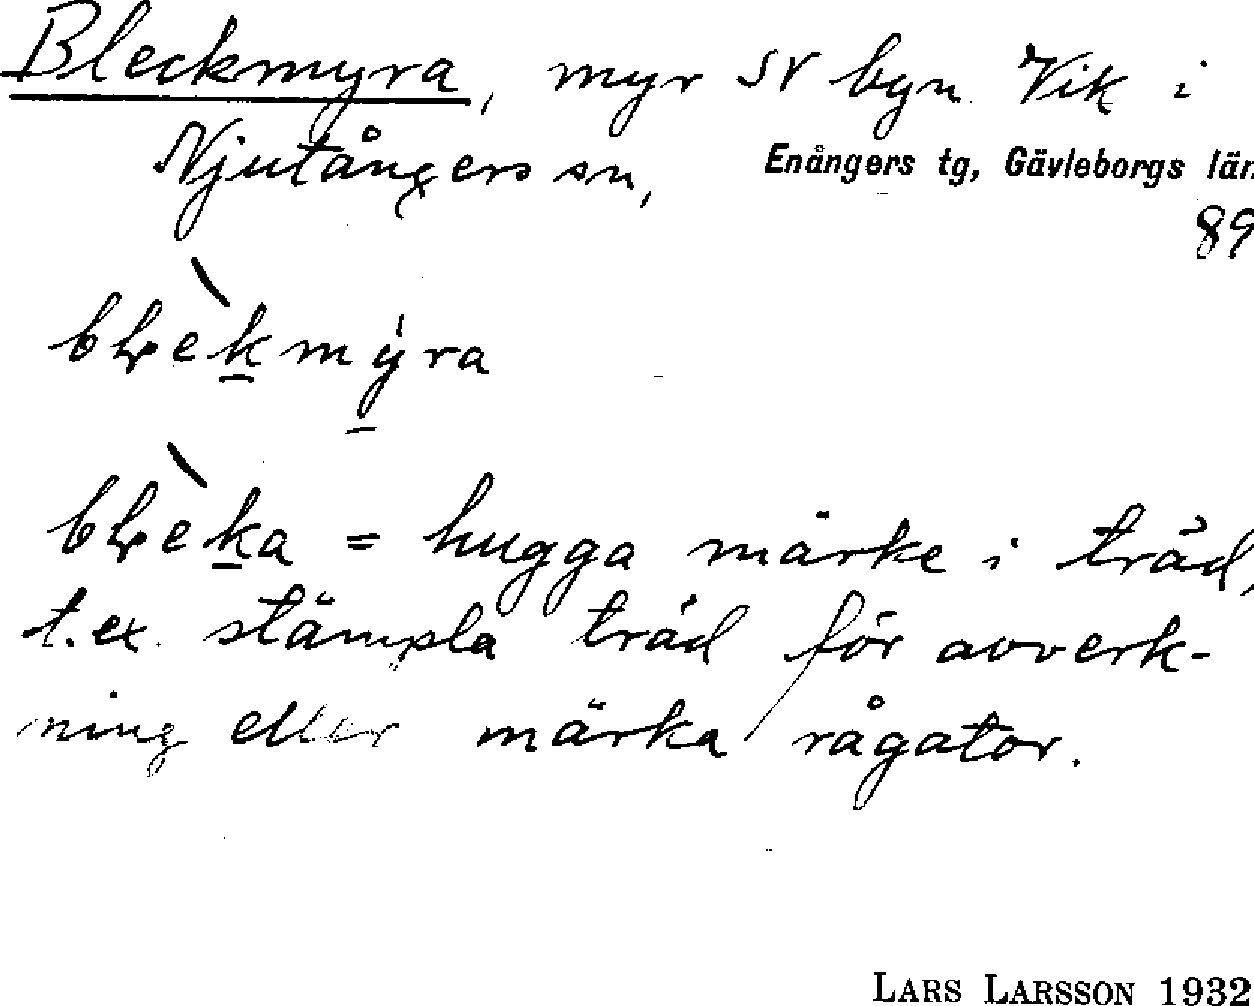 Bleckmyra, myr SV byn Vik i
Njutångers sn, Enångers tg, Gävleborgs län
89
blekmyra
bleka = hugga märke i träd,
t.ex. stämpla träd för avverk-
ning eller märka rågator.
LARS LARSSON 1932